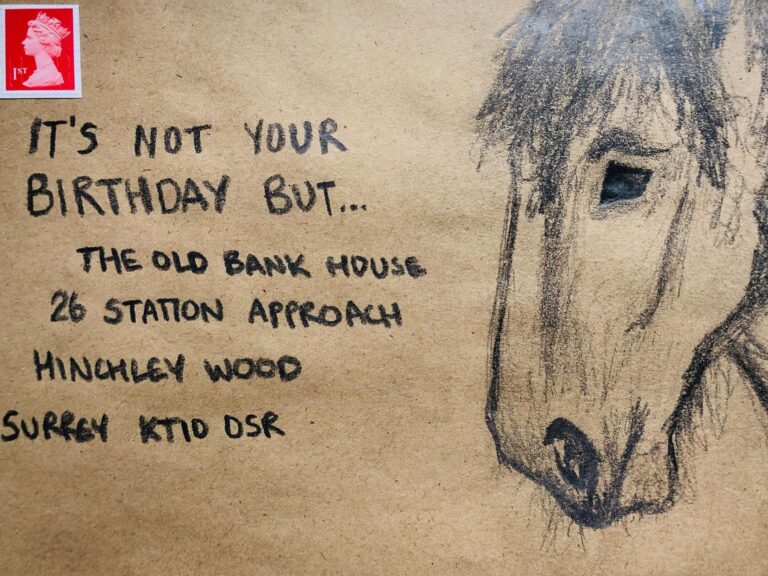 1ST
IT'S NOT YOUR
BIRTHDAY BUT...
THE OLD BANK HOUSE
26 STATION APPROACH
HINCHLEY WOOD
SURREY KT10 0SR